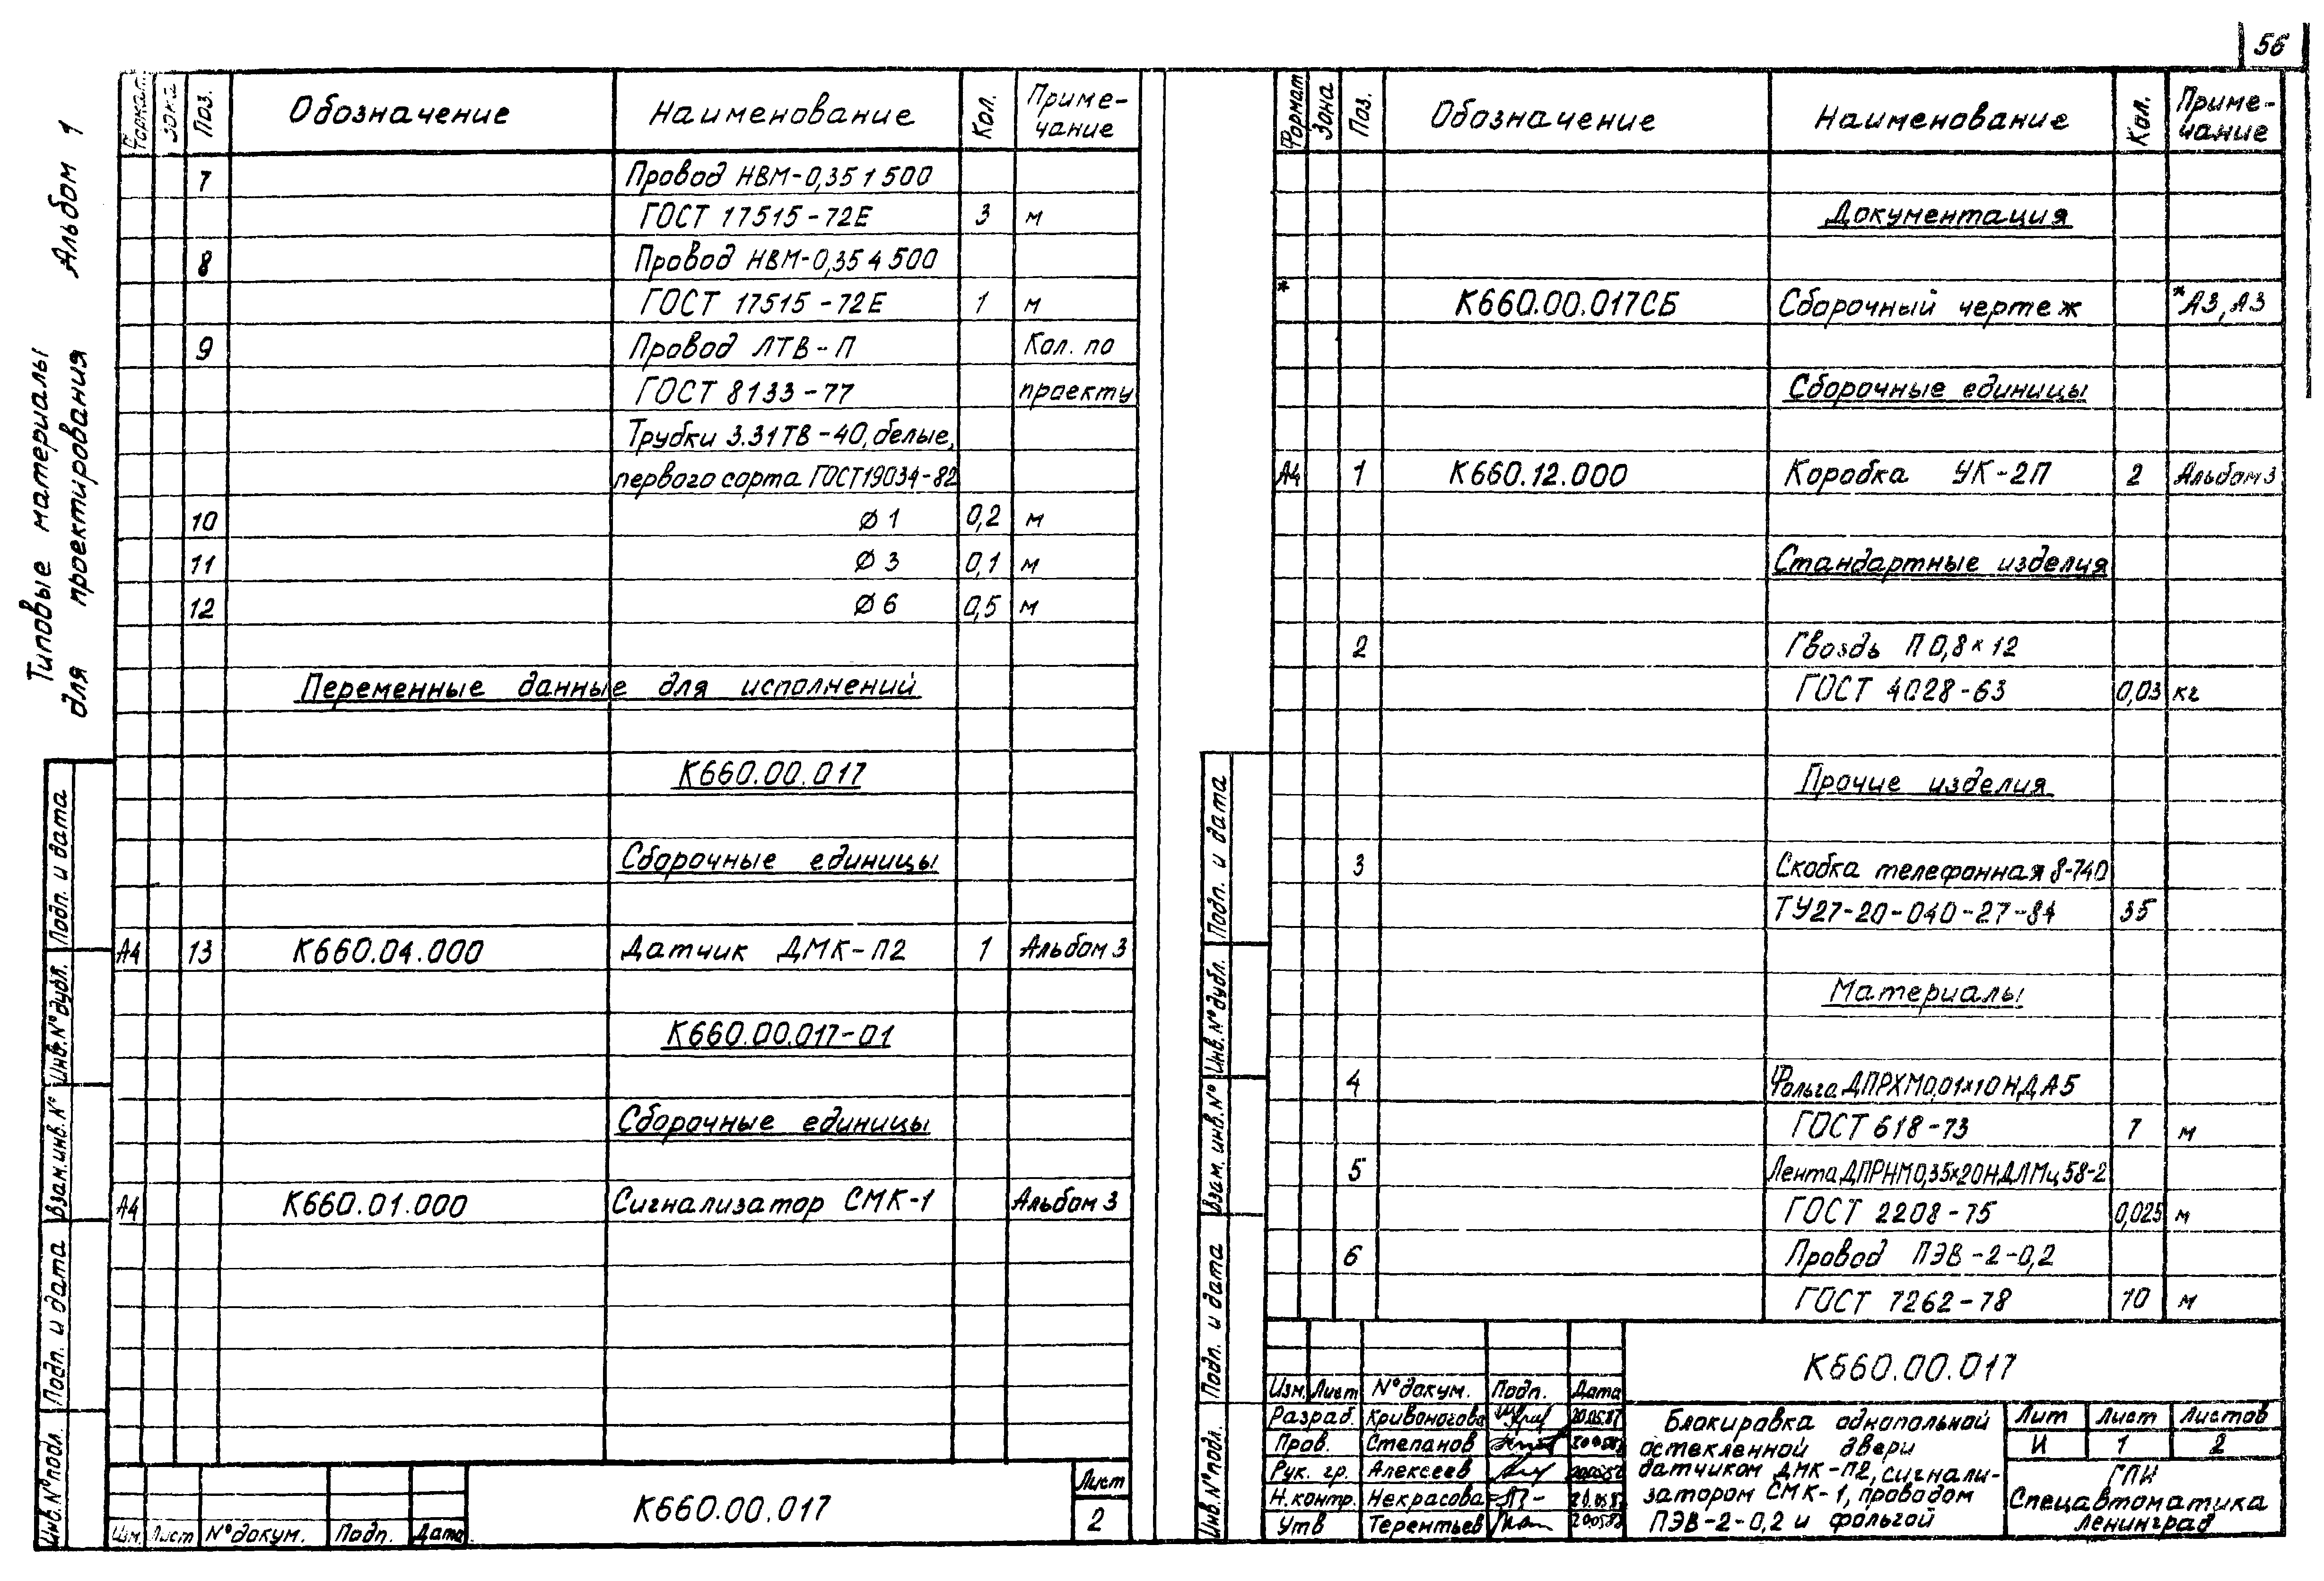 56
Типовые материалы
для проектирования Альбом 1
Формат Зона Поз. Обозначение Наименование Кол. Приме-
чание
7 Провод НВМ-0,35 1 500
ГОСТ 17515-72Е 3 м
8 Провод НВМ-0,35 4 500
ГОСТ 17515-72Е 1 м
9 Провод ЛТВ-П Кол. по
ГОСТ 8133-77 проекту
Трубки 3.31ТВ-40, белые,
первого сорта ГОСТ 19034-82
10 Ø 1 0,2 м
11 Ø 3 0,1 м
12 Ø 6 0,5 м
Переменные данные для исполнений
К660.00.017
Сборочные единицы
А4 13 К660.04.000 Датчик ДМК-П2 1 Альбом 3
К660.00.017-01
Сборочные единицы
А4 К660.01.000 Сигнализатор СМК-1 Альбом 3
Инв. № подл. Подп. и дата Взам. инв. № Инв. № дубл. Подп. и дата
Изм. Лист № докум. Подп. Дата
К660.00.017
Лист
2
Формат Зона Поз. Обозначение Наименование Кол. Приме-
чание
Документация
* К660.00.017СБ Сборочный чертеж *А3, А3
Сборочные единицы
А4 1 К660.12.000 Коробка УК-2П 2 Альбом 3
Стандартные изделия
2 Гвоздь П 0,8×12
ГОСТ 4028-63 0,03 кг
Прочие изделия
3 Скобка телефонная 8-740
ТУ27-20-040-27-84 35
Материалы
4 Фольга ДПРХМ0,01×10НДА5
ГОСТ 618-73 7 м
5 Лента ДПРНМ0,35×20НДЛМц58-2
ГОСТ 2208-75 0,025 м
6 Провод ПЭВ-2-0,2
ГОСТ 7262-78 10 м
Инв. № подл. Подп. и дата Взам. инв. № Инв. № дубл. Подп. и дата
К660.00.017
Изм. Лист № докум. Подп. Дата
Разраб. Кривоногова 20.05.87
Пров. Степанов
Рук. гр. Алексеев
Н.контр. Некрасова
Утв Терентьев
Блокировка однопольной
остекленной двери
датчиком ДМК-П2, сигнали-
затором СМК-1, проводом
ПЭВ-2-0,2 и фольгой
Лит Лист Листов
И 1 2
ГПИ
Спецавтоматика
Ленинград